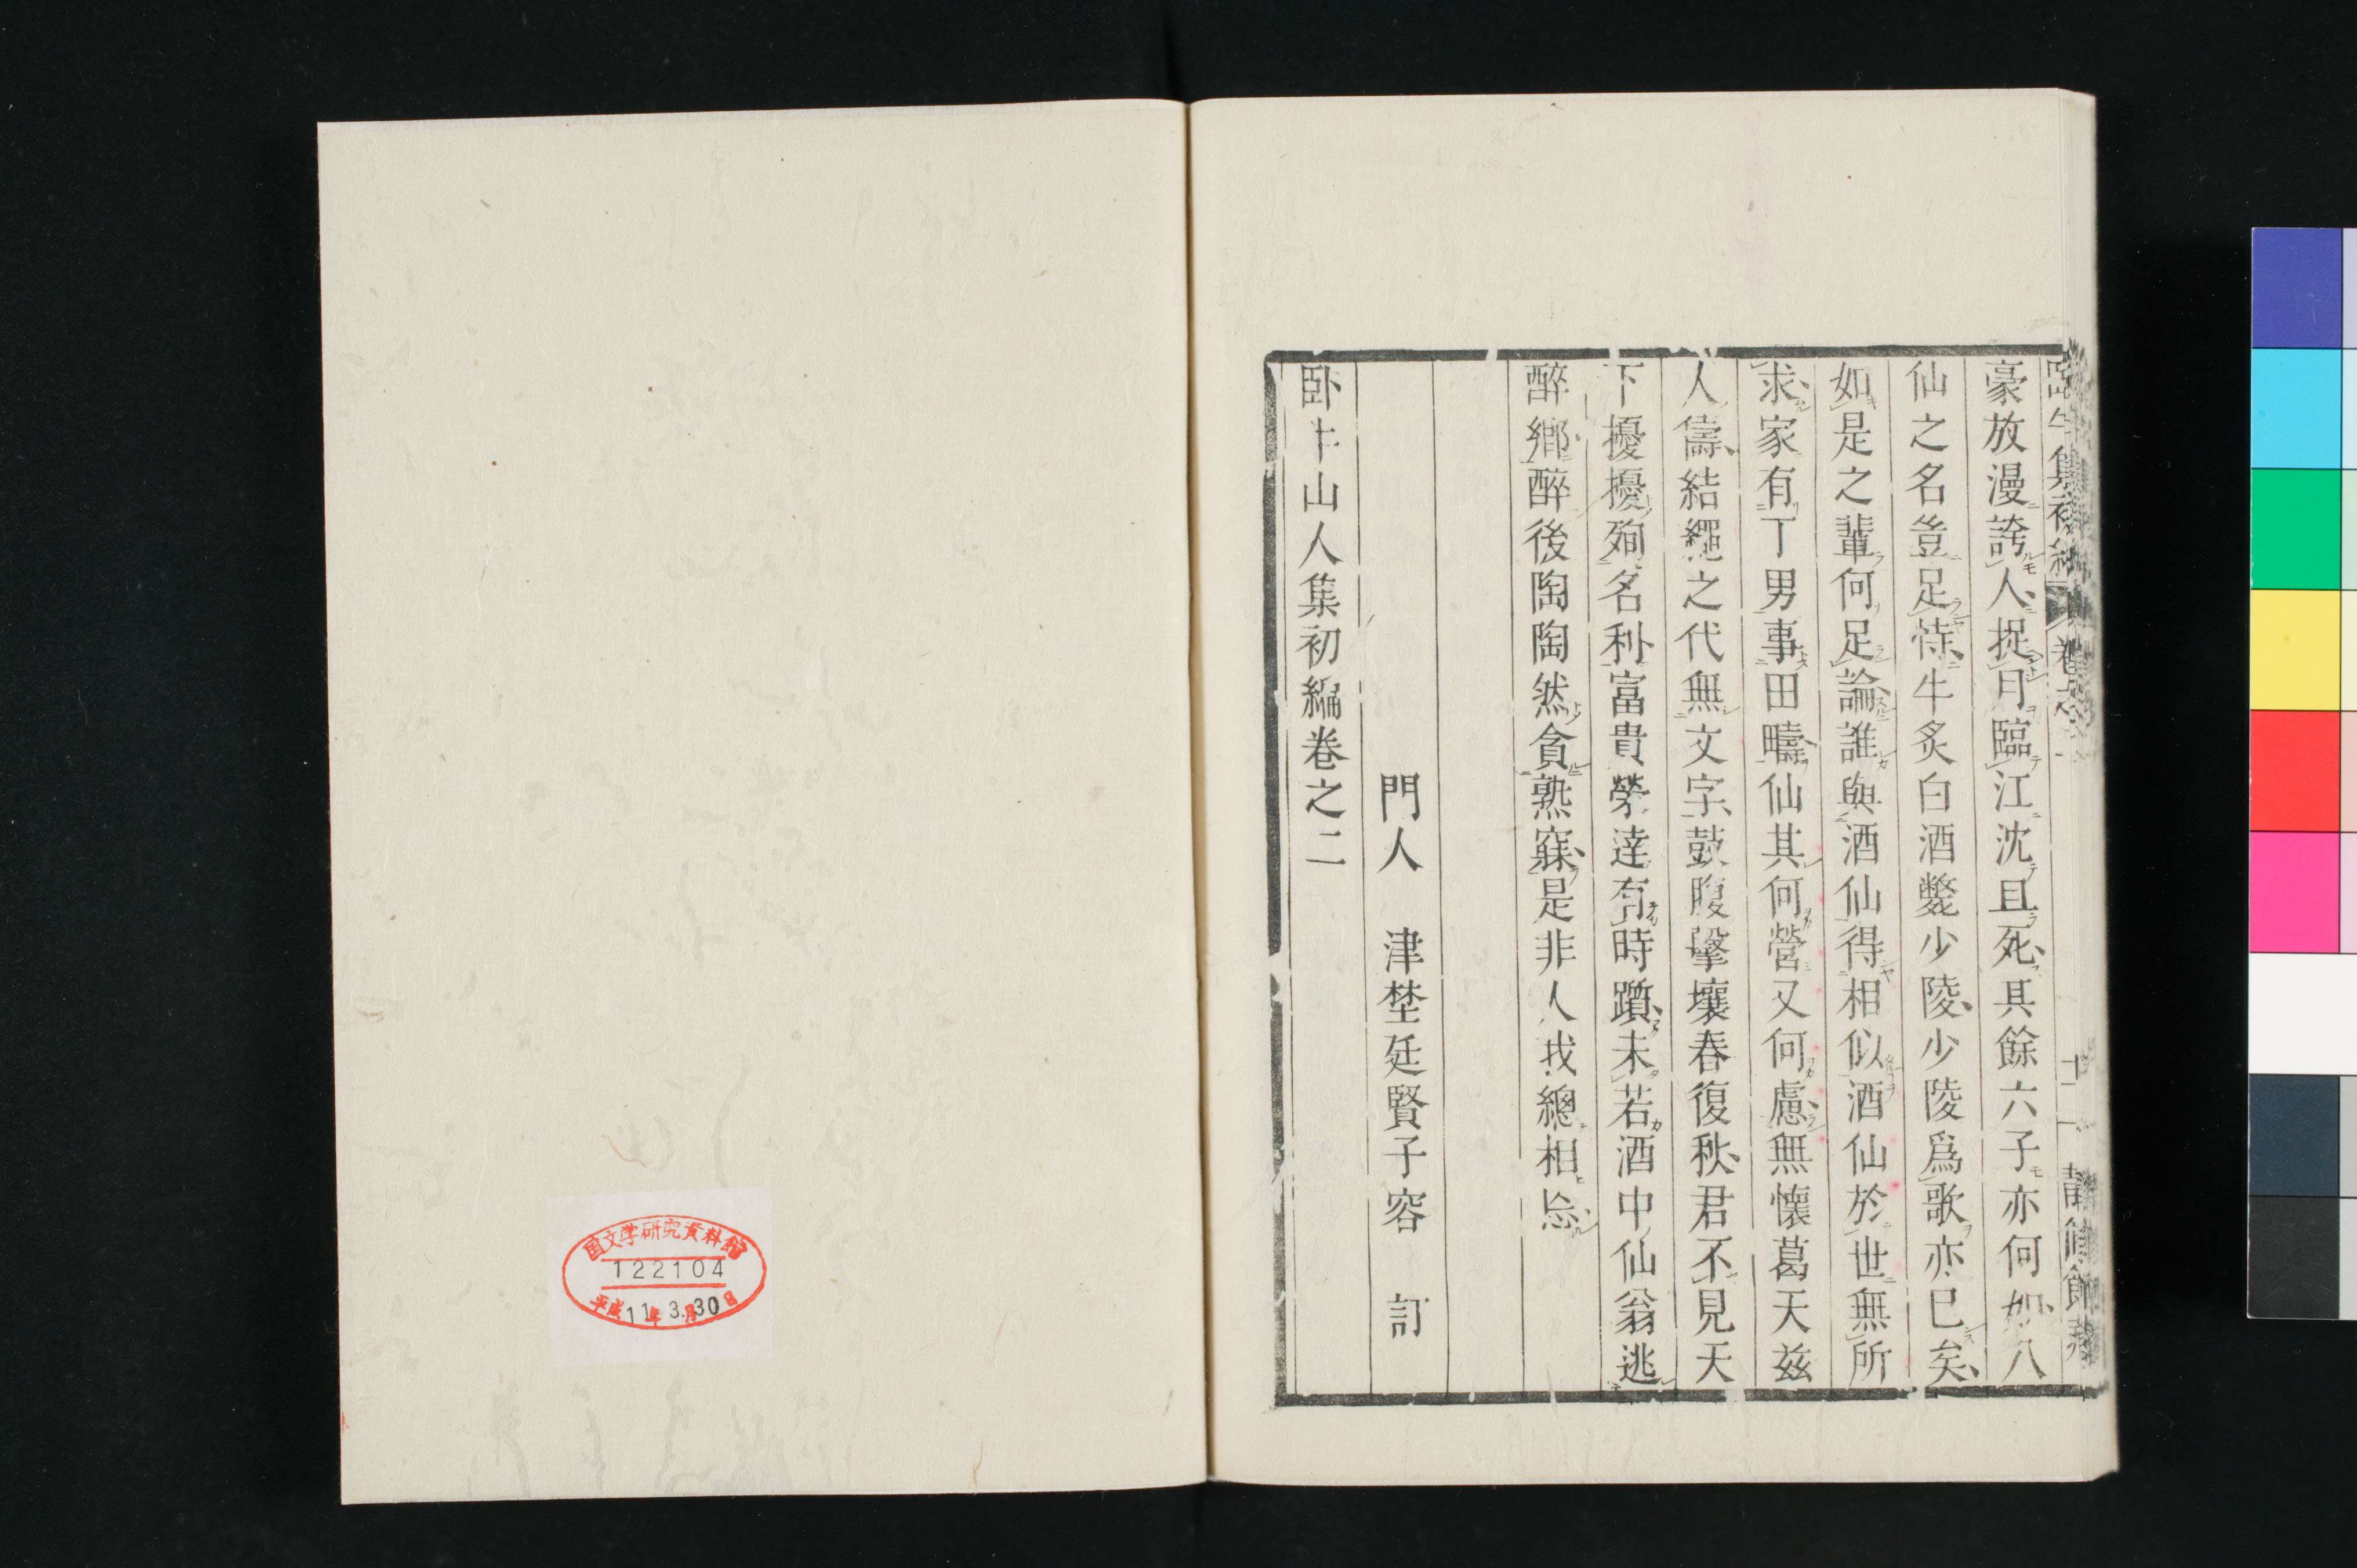 豪放漫誇人捉月臨江沈且死其餘六子亦何如八
仙之名豈足恃牛炙白酒斃少陵少陵爲歌亦已矣
如是之輩何足論誰與酒仙得相似酒仙於世無所
求家有丁男事田疇仙其何營又何慮無懷葛天茲
人儔結繩之代無文字鼓腹擊壤春復秋君不見天
下擾擾殉名利富貴榮達有時躓未若酒中仙翁逃
醉鄉醉後陶陶然貪熟寐是非人我總相忘
門人 津埜廷賢子容 訂
卧牛山人集初編卷之二
国文学研究資料館
122104
平成11年3月30日